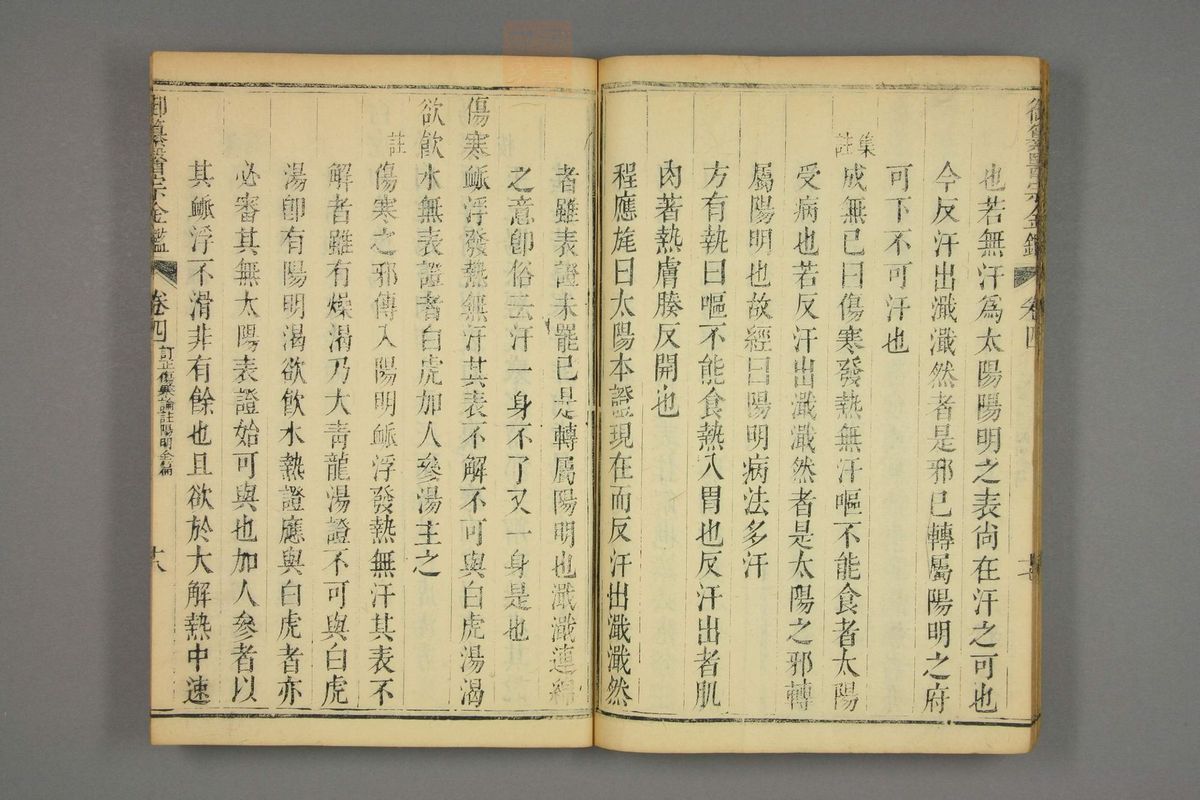 御纂醫宗金鑑 卷四
也若無汗爲太陽陽明之表尚在汗之可也
今反汗出濈濈然者是邪已轉屬陽明之府
可下不可汗也
集註
成無已曰傷寒發熱無汗嘔不能食者太陽
受病也若反汗出濈濈然者是太陽之邪轉
屬陽明也故經曰陽明病法多汗
方有執曰嘔不能食熱入胃也反汗出者肌
肉著熱膚腠反開也
程應旄曰太陽本證現在而反汗出濈濈然
者雖表證未罷已是轉屬陽明也濈濈連綿
之意卽俗云汗一身不了又一身是也
傷寒脈浮發熱無汗其表不解不可與白虎湯渴
欲飮水無表證者白虎加人參湯主之
註
傷寒之邪傳入陽明脈浮發熱無汗其表不
解者雖有燥渴乃大靑龍湯證不可與白虎
湯卽有陽明渴欲飮水熱證應與白虎者亦
必審其無太陽表證始可與也加人參者以
其脈浮不滑非有餘也且欲於大解熱中速
御纂醫宗金鑑 卷四 訂正傷寒論註陽明全篇 十八